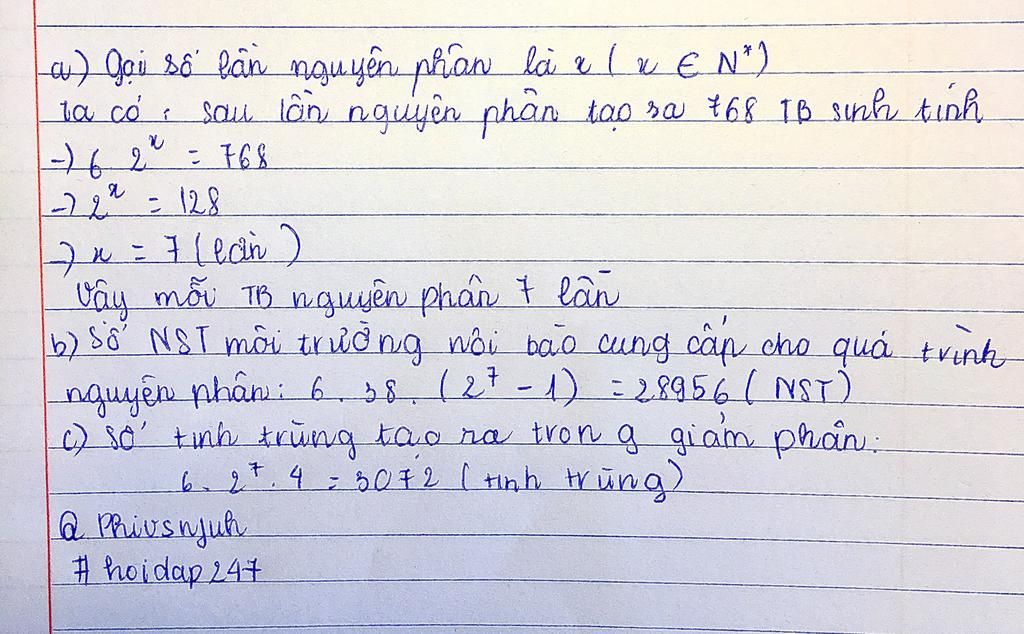 a) Gọi số lần nguyên phân là x ( x ∈ N*)
ta có : sau lần nguyên phân tạo ra 768 TB sinh tinh
→ 6. 2^x = 768
→ 2^x = 128
→ x = 7 (lần)
Vậy mỗi TB nguyên phân 7 lần
b) Số NST môi trường nội bào cung cấp cho quá trình
nguyên phân: 6. 38. (2^7 - 1) = 28956 ( NST)
c) Số tinh trùng tạo ra trong giảm phân:
6. 2^7. 4 = 3072 ( tinh trùng)
@ Phivsnjuh
# hoidap247